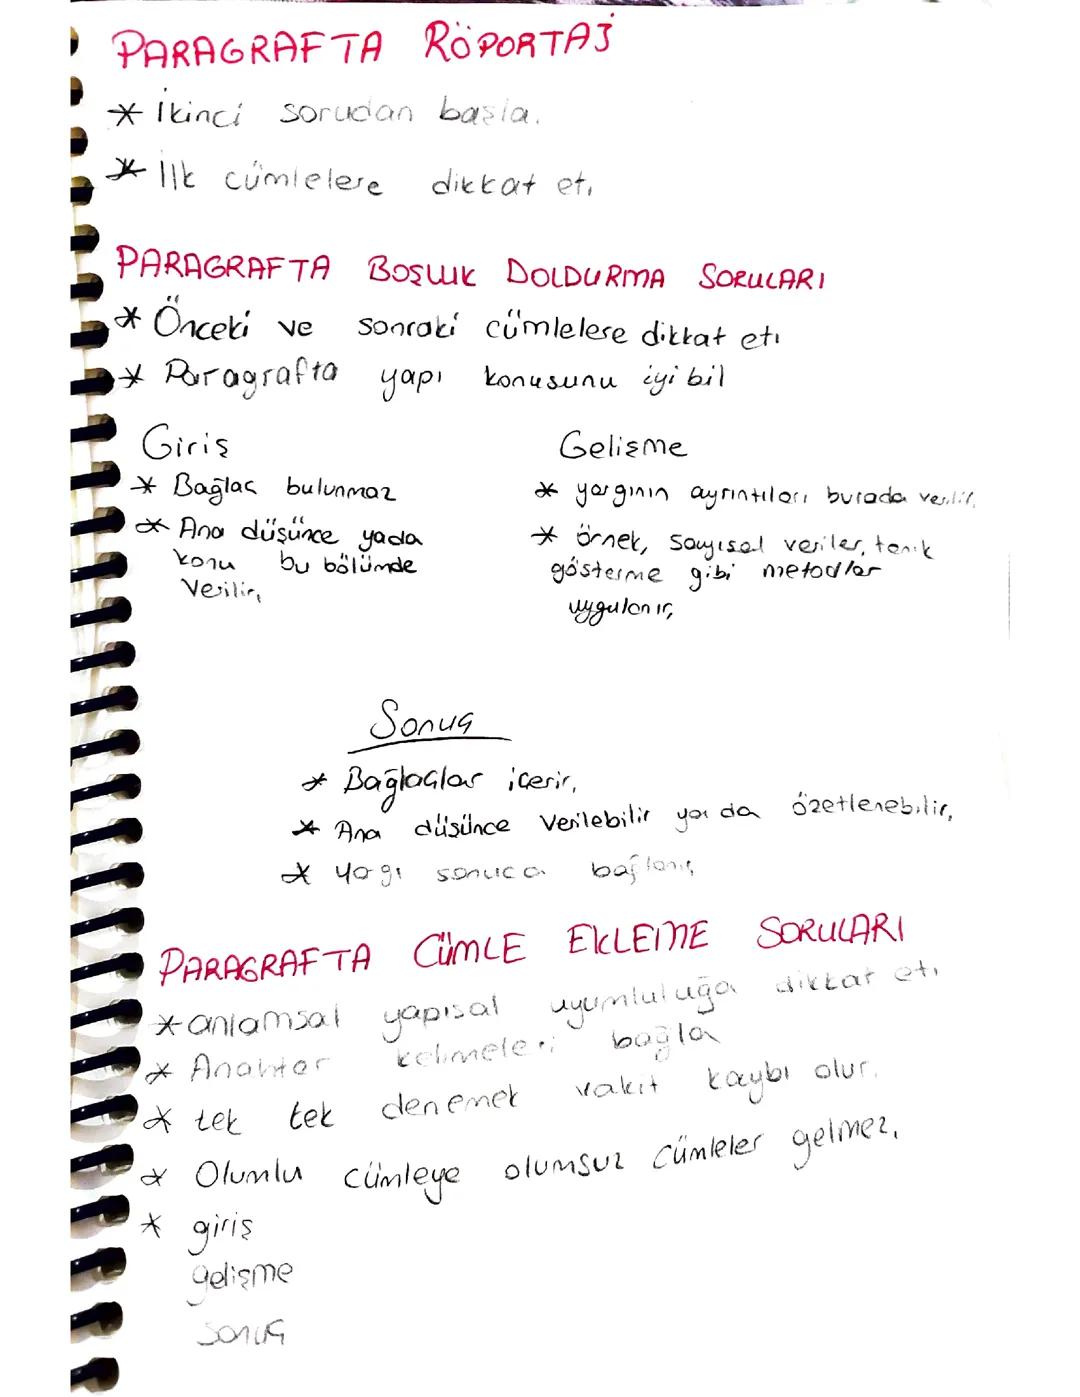 PARAGRAFTA RÖPORTAJ
* İkinci sorudan başla.
* İlk cümlelere dikkat et.
PARAGRAFTA BOŞLUK DOLDURMA SORULARI
* Önceki ve sonraki cümlelere dikkat et.
* Paragrafta yapı konusunu iyi bil
Giriş
* Bağlaç bulunmaz
* Ana düşünce yada
konu bu bölümde
verilir.
Gelişme
* yargının ayrıntıları burada verilir.
* örnek, sayısal veriler, tanık
gösterme gibi metodlar
uygulanır.
Sonuç
* Bağlaçlar içerir.
* Ana düşünce verilebilir ya da özetlenebilir.
* Yagı sonuca bağlanır.
PARAGRAFTA CÜMLE EKLEME SORULARI
* anlamsal yapısal uyumluluğa dikkat et.
* Anahtar kelimeleri bağla
* tek tek denemek vakit kaybı olur.
* Olumlu cümleye olumsuz cümleler gelmez.
* giriş
gelişme
sonuç